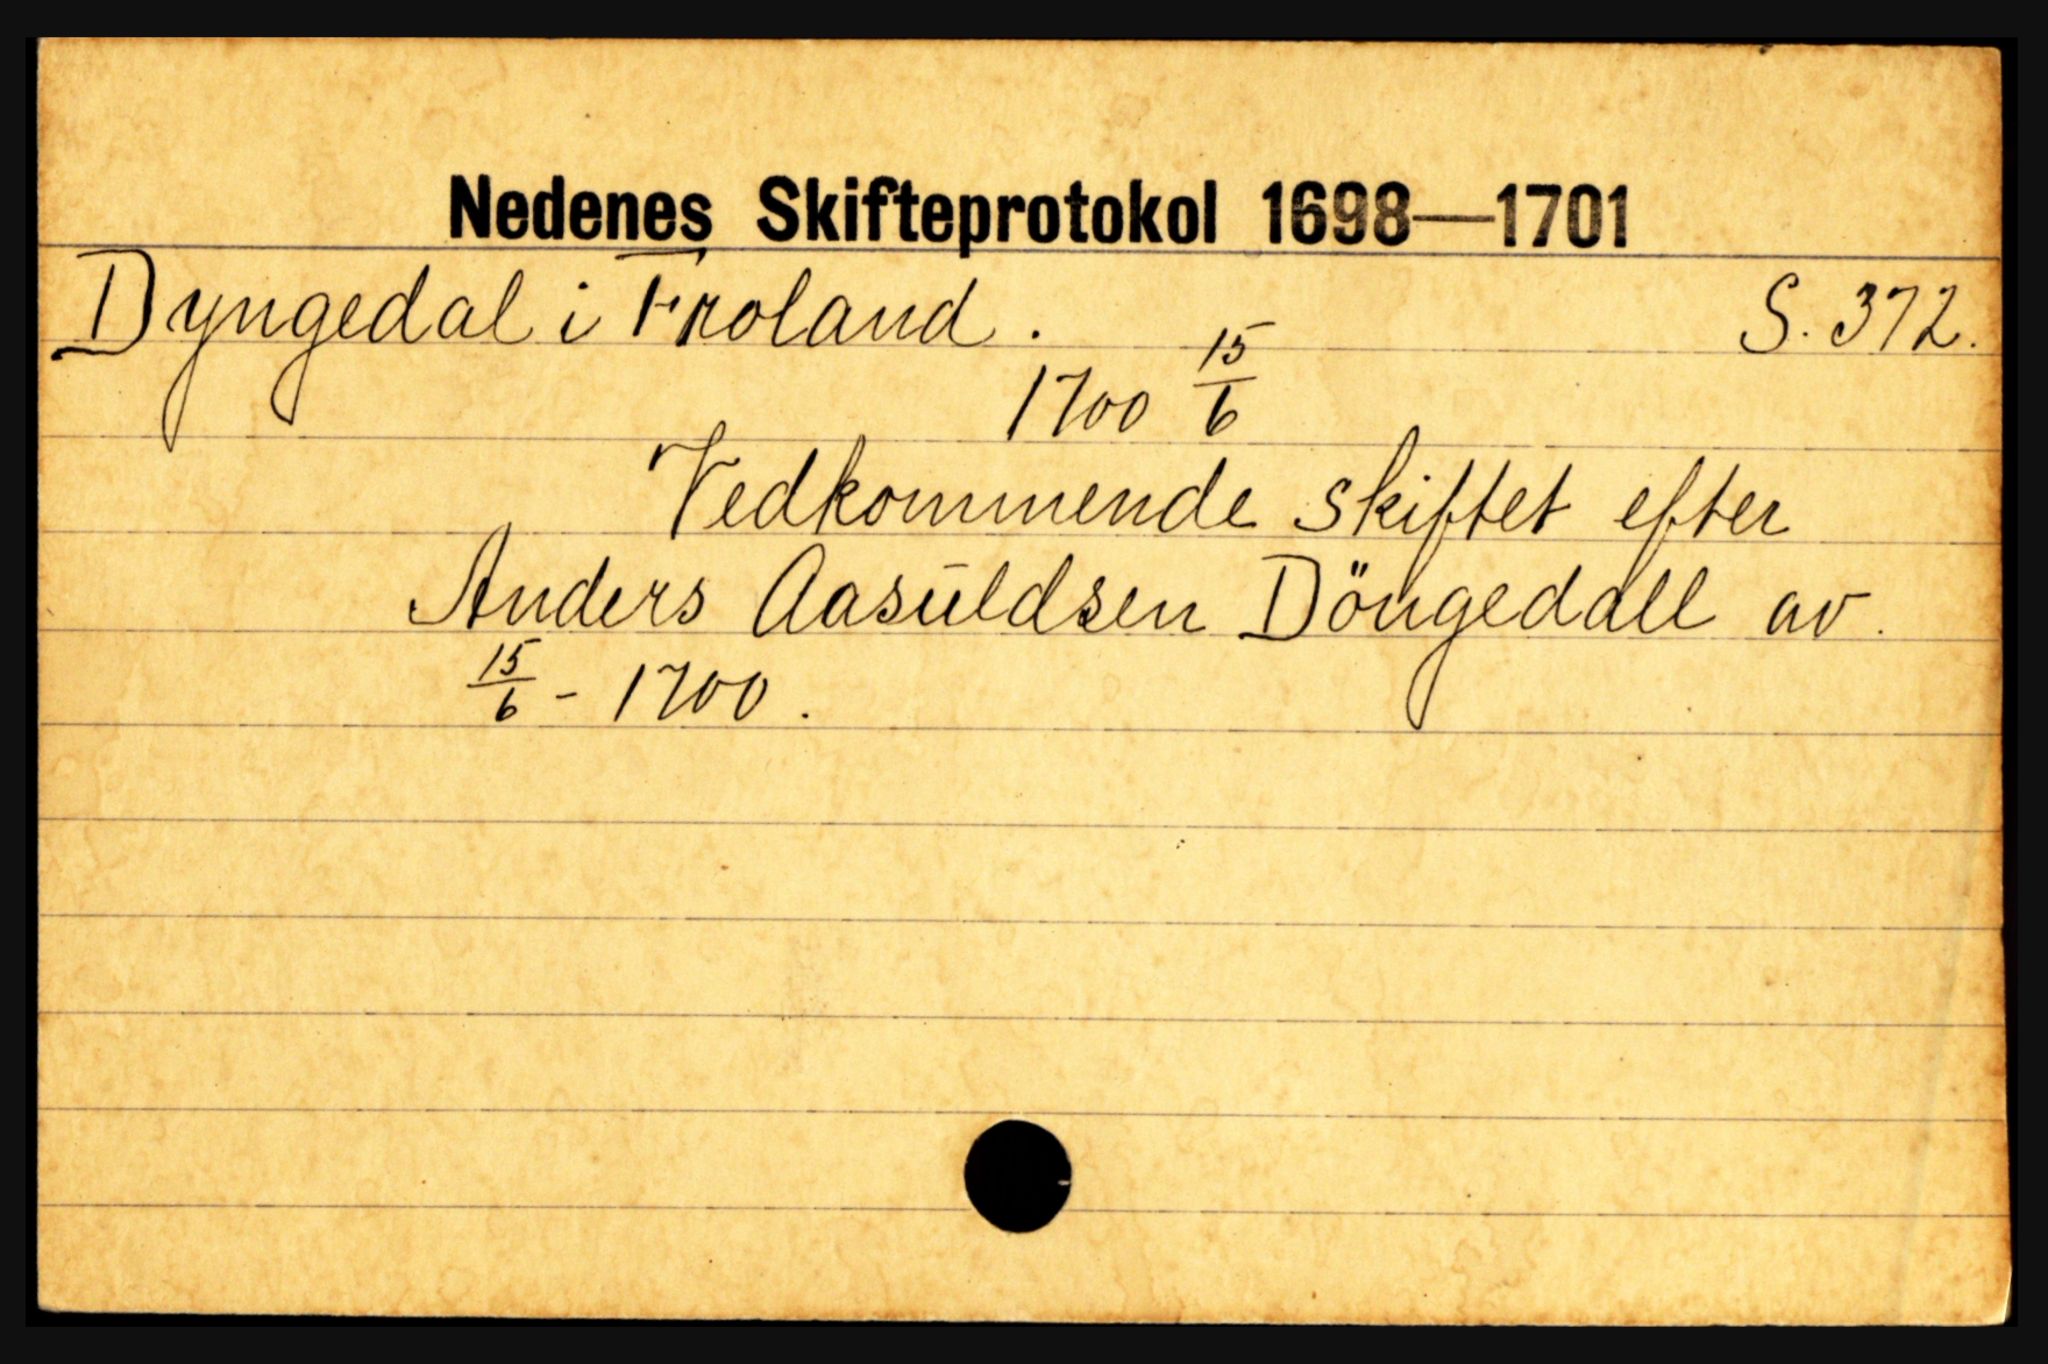 Nedenes Skifteprotokol 1698—1701
Dyngedal i Froland. S. 372.
1700 15/6
Vedkommende skiftet efter
Anders Aasuldsen Döngedall av
15/6 - 1700.